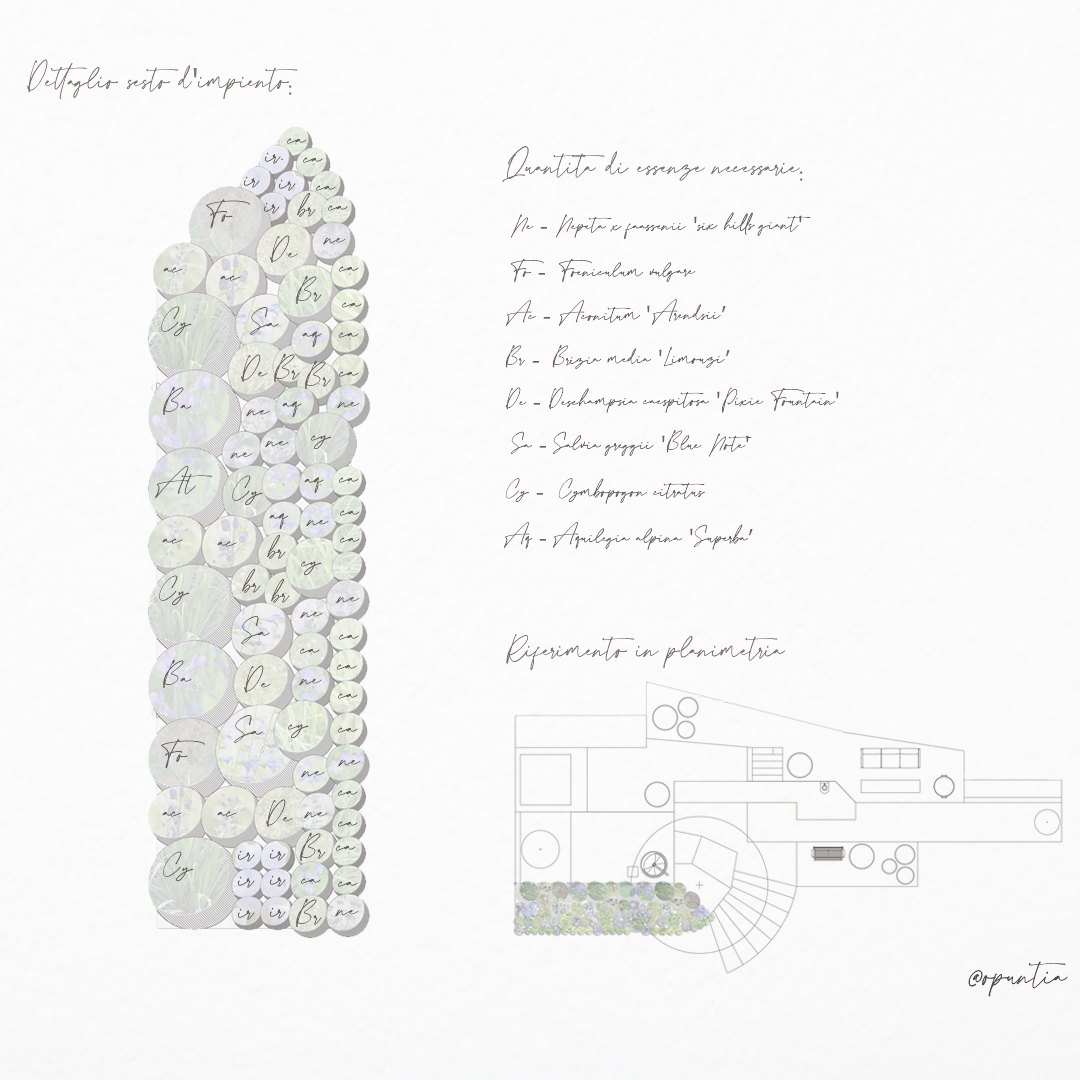 Dettaglio sesto d'impiento:
ca
ir ca
ir ir ca
Fo ir br ca
De ne
ac ac ca
Br ca
Cy Sa aq ca
De Br Br ca
Ba ne aq ne
ne ne cy
At Cy aq ca
aq ne ca
ac ac br cy ca
Cy br br ne
Sa ne ca
ca ca
Ba De ne ca
Sa cy ca
Fo ne ne
ca
ac ac De ne ca
Cy ir ir Br ca
ir ir ca ca
ir ir Br ne
Quantita di essenze necessarie:
Ne - Nepeta x faassenii 'six hills giant'
Fo - Foeniculum vulgare
Ac - Aconitum 'Arendsii'
Br - Brizia media 'Limouzi'
De - Deschampsia caespitosa 'Pixie Fountain'
Sa - Salvia greggii 'Blue Note'
Cy - Cymbopogon citratus
Aq - Aquilegia alpina 'Superba'
Riferimento in planimetria
@opuntia